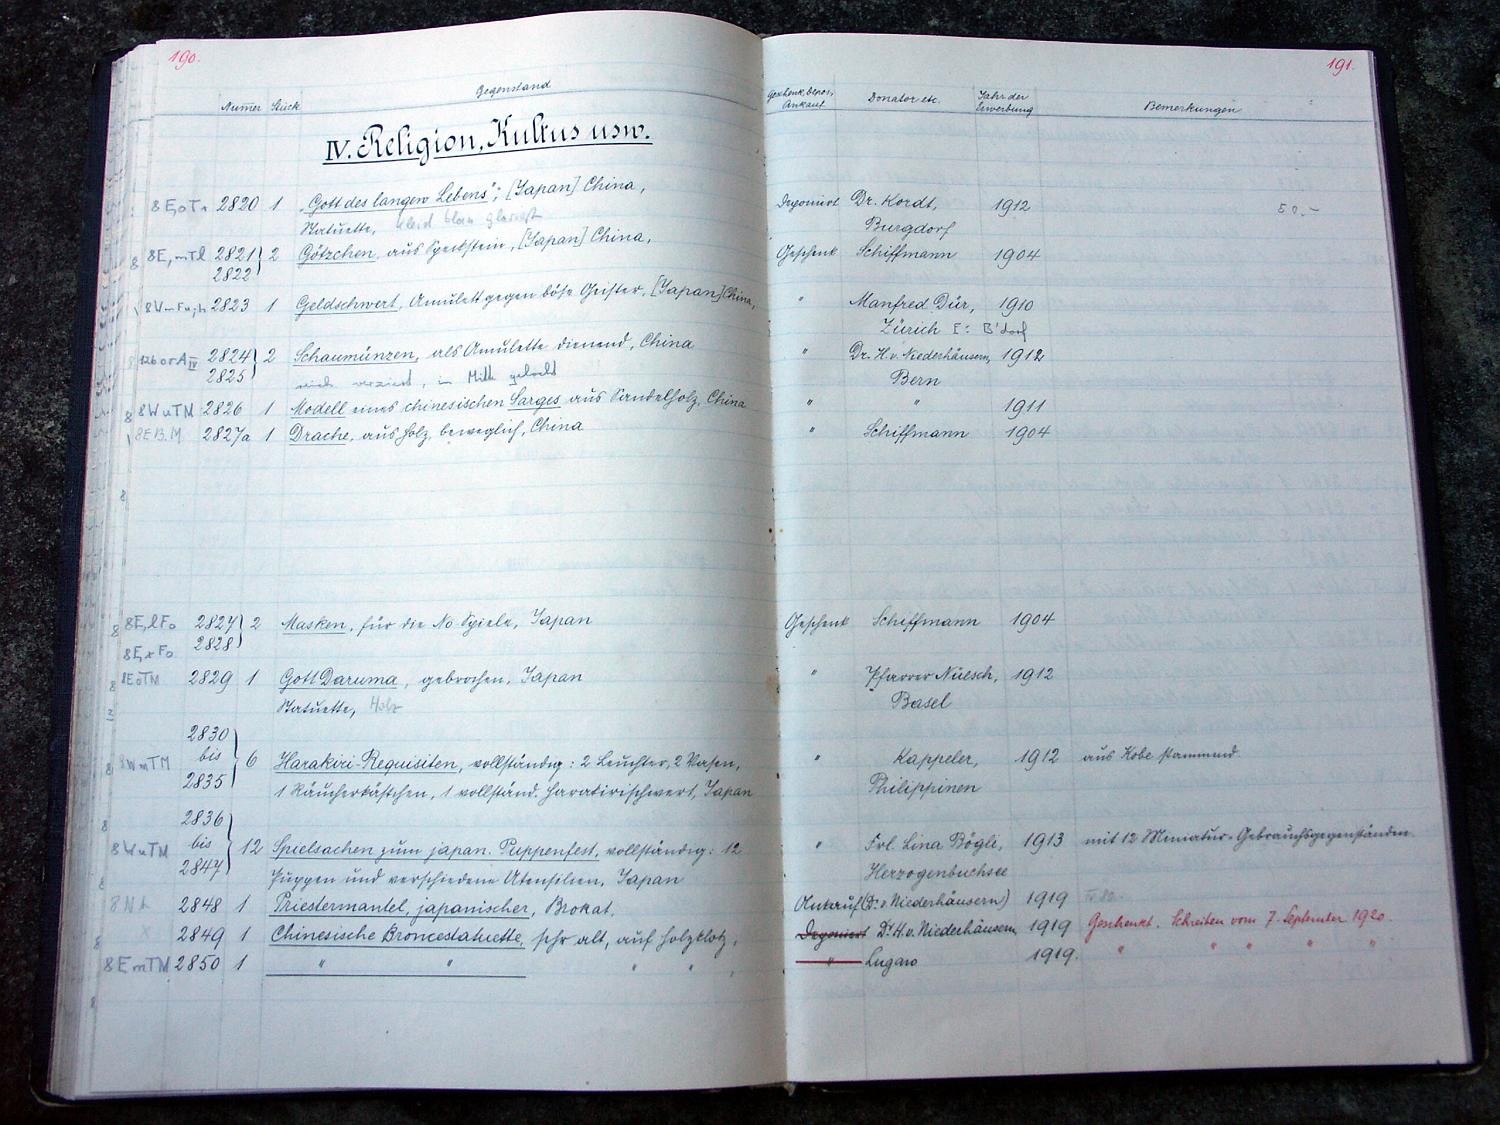 190.
191.
Numer Stück Gegenstand Geschenk, depos, Ankauf Donator etc. Jahr der Erwerbung Bemerkungen
IV. Religion, Kultus usw.
2820 1 "Gott des langen Lebens"; [Japan] China, Deponiert Dr. Kordt, 1912 50.-
Statuette, Kleid blau glasiert Burgdorf
8E, mTl 2821 2 Götzchen, aus Speckstein, [Japan] China, Geschenk Schiffmann 1904
2822
2823 1 Geldschwert, Amulett gegen böse Geister, [Japan] China, " Manfred Dür, 1910
Zürich I: B'dorf
2824 2 Schaumünzen, als Amulette dienend, China " Dr. H. v. Niederhäusern, 1912
2825 reich verziert, in Mitte gelocht Bern
8WuTM 2826 1 Modell eines chinesischen Sarges aus Sandelholz, China " " 1911
8EB.M. 2827a 1 Drache, aus Holz, beweglich, China " Schiffmann 1904
8E,lFo 2827 2 Masken, für die No Spiele, Japan Geschenk Schiffmann 1904
8E,rFo 2828
8EoTM 2829 1 Gott Daruma, gebrochen, Japan " Pfarrer Nüesch, 1912
Statuette, Holz Basel
2830
8WmTM bis 6 Harakiri-Requisiten, vollständig: 2 Leuchter, 2 Vasen, " Kappeler, 1912 aus Kobe stammend.
2835 1 Räucherkästchen, 1 vollständ. Harakirischwert, Japan Philippinen
2836
8WuTM bis 12 Spielsachen zum japan. Puppenfest, vollständig: 12 " Frl. Lina Bögli, 1913 mit 12 Miniatur-Gebrauchsgegenständen
2847 Puppen und verschiedene Utensilien, Japan Herzogenbuchsee
2848 1 Priestermantel, japanischer, Brokat. Ankauf (v. Niederhäusern) 1919
2849 1 Chinesische Broncestatuette, sehr alt, auf Holzklotz, Deponiert Dr H. v. Niederhäusern, 1919 Geschenkt. Schreiben vom 7. September 1920.
8EmTM 2850 1 " " " " " Lugano 1919. " " " " "